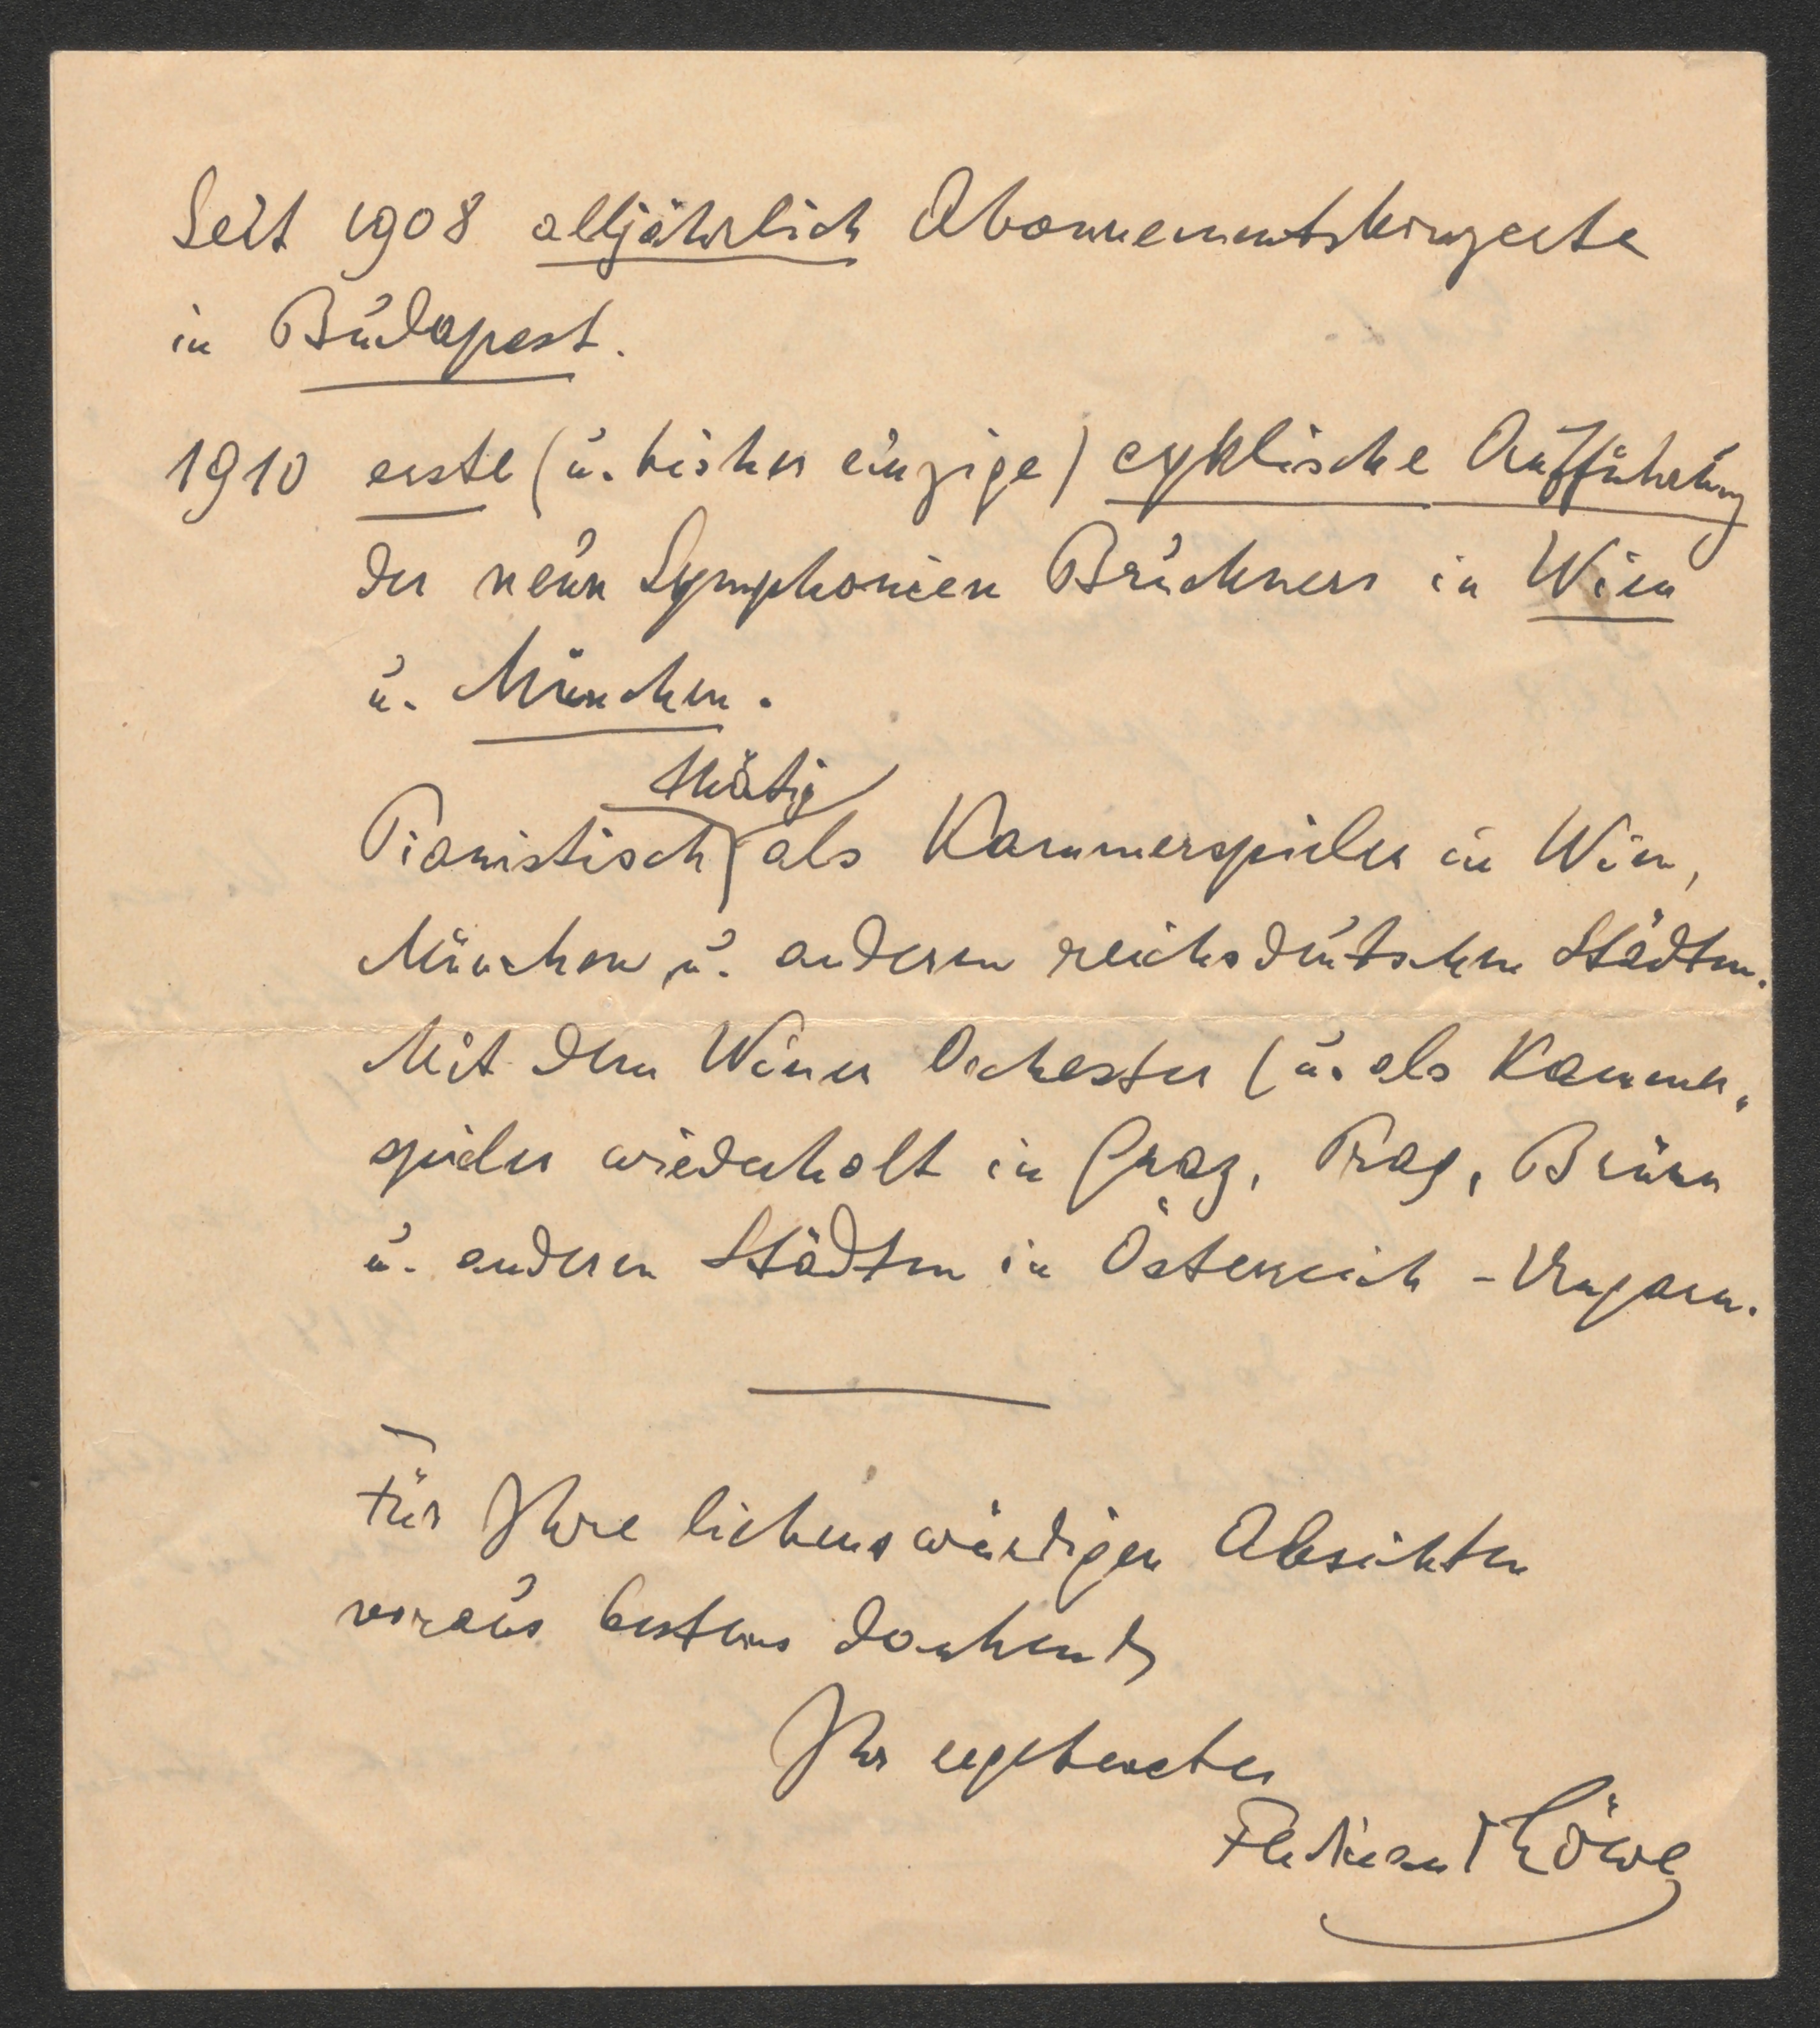 Seit 1908 alljährlich Abonnementskonzerte
in Budapest.
1910 erste (u. bisher einzige) cyklische Aufführung
der neun Symphonien Bruckners in Wien
u. München.
thätig
Pianistisch als Kammerspieler in Wien,
München u. anderen reichsdeutschen Städten.
Mit dem Wiener Orchester (u. als Kammer„
spieler wiederholt in Graz, Prag, Brünn
u. anderen Städten in Österreich - Ungarn.
Für Ihre liebenswürdigen Absichten
voraus bestens dankend
Ihr ergebenster
Ferdinand Löwe